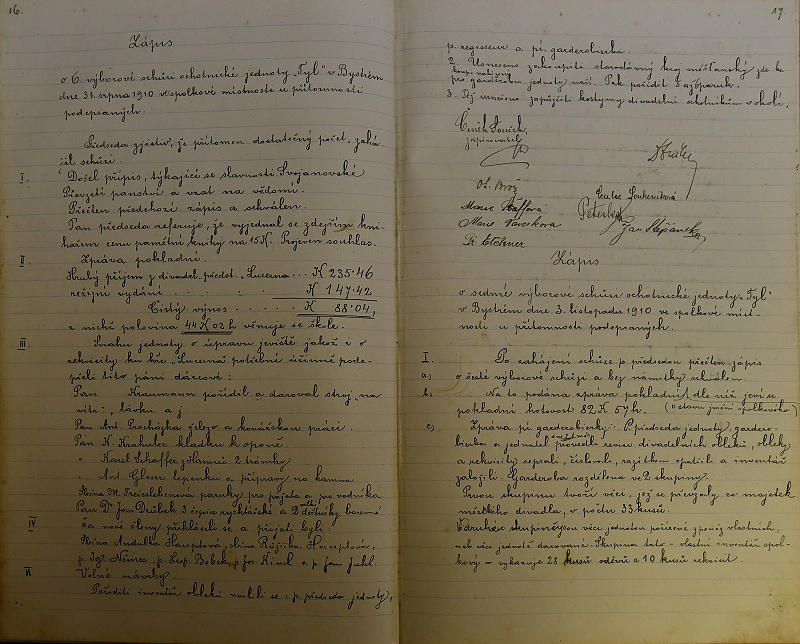 16.
Zápis
o 6. výborové schůzi ochotnické jednoty „Tyl" v Bystrém
dne 31. srpna 1910 v spolkové místnosti u přítomnosti
podepsaných.
Předseda zjistiv, že přítomen dostatečný počet, zahá-
jil schůzi.
I. Došel přípis, týkající se slavnosti Svojanovské
Převzetí panství a vzat na vědomí.
Přečten předchozí zápis a schválen.
Pan předseda referuje, že vyjednal se zdejším kni-
hařem cenu pamětní knihy na 15 K. Projeven souhlas.
II. Zpráva pokladní.
Hrubý příjem z divadel. předst. „Lucerna ... K 235·46
režijní vydání . . . . K 147·42
Čistý výnos . . . . . K 88·04,
z nichž polovina 44 K 02 h věnuje se škole.
III. Snahu jednoty o úpravu jeviště jakož i o
rekvisity ku hře „Lucerna" potřebné účinně pode-
přeli tito páni dárcové:
Pan Kraumann pořídil a daroval stroj „na
lávku a j
Pan Ant. Procházka železo a kovářskou práci.
Pán K. Krahulec kladku k oponě.
" Karel Schaffer z Hamrů 2 trámky
" Ant. Gloser lepenku a přípravy na kamna
Slečna M. Treislebenova paruky pro pážata a pro vodníka.
Pan Dr Jan Drábek 3 čepice rychtářské a 2 deštníky barevné
IV Za nové členy přihlásili se a přijati byli:
Slečna Andulka Hauptová, slečna Růžička Hauptova,
p. Jos. Němec, p. Leop. Bobek, p. Jos. Kincl a p. Jan
V Volné návrhy.
Pořídit inventář obleků uvolili se: p. předseda jednoty,
17.
p. regisseur a pí. garderobierka.
2. Usneseno zakoupiti starodávný kroj měšťanský zde ke
koupi nabízený
pro garderobu jednoty naší. Pak pořídit 3
3. Též usneseno zapůjčiti kostymy divadelní ochotníkům v okolí.
Čeněk Souček,
zapisovatel
Ot. Brož
Marie Schaffová
Marie Vaverkova
Peterka
Jan Štěpánek
Zápis
o sedmé výborové schůzi ochotnické jednoty „Tyl"
v Bystrém dne 3. listopadu 1910 ve spolkové míst-
nosti u přítomnosti podepsaných.
I. Po zahájení schůze p. předsedou přečten zápis
a) o šesté výborové schůzi a bez námitky schválen.
b) Na to podána zpráva pokladní, dle níž jeví se
pokladní hotovost 82 K 57 h. (o stavu jmění spolkového)
c) Zpráva pí. garderobierky. Předseda jednoty, gardero-
bierka a jednatel provedli revisi divadelních obleků, obleky
a rekvisity sepsali, číslovali, razítkem opatřili a inventář
založili. Garderoba rozdělena ve 2 skupiny.
Prvou skupinu tvoří věci, jež se převzaly co majetek
městského divadla, v počtu 33 kusů.
Druhou skupinu jsou věci jednotou pořízené z peněz vlastních,
neb věci jednotě darované. Skupina tato – vlastní inventář spol-
kový – vykazuje 28 kusů oděvů a 10 kusů rekvisit.